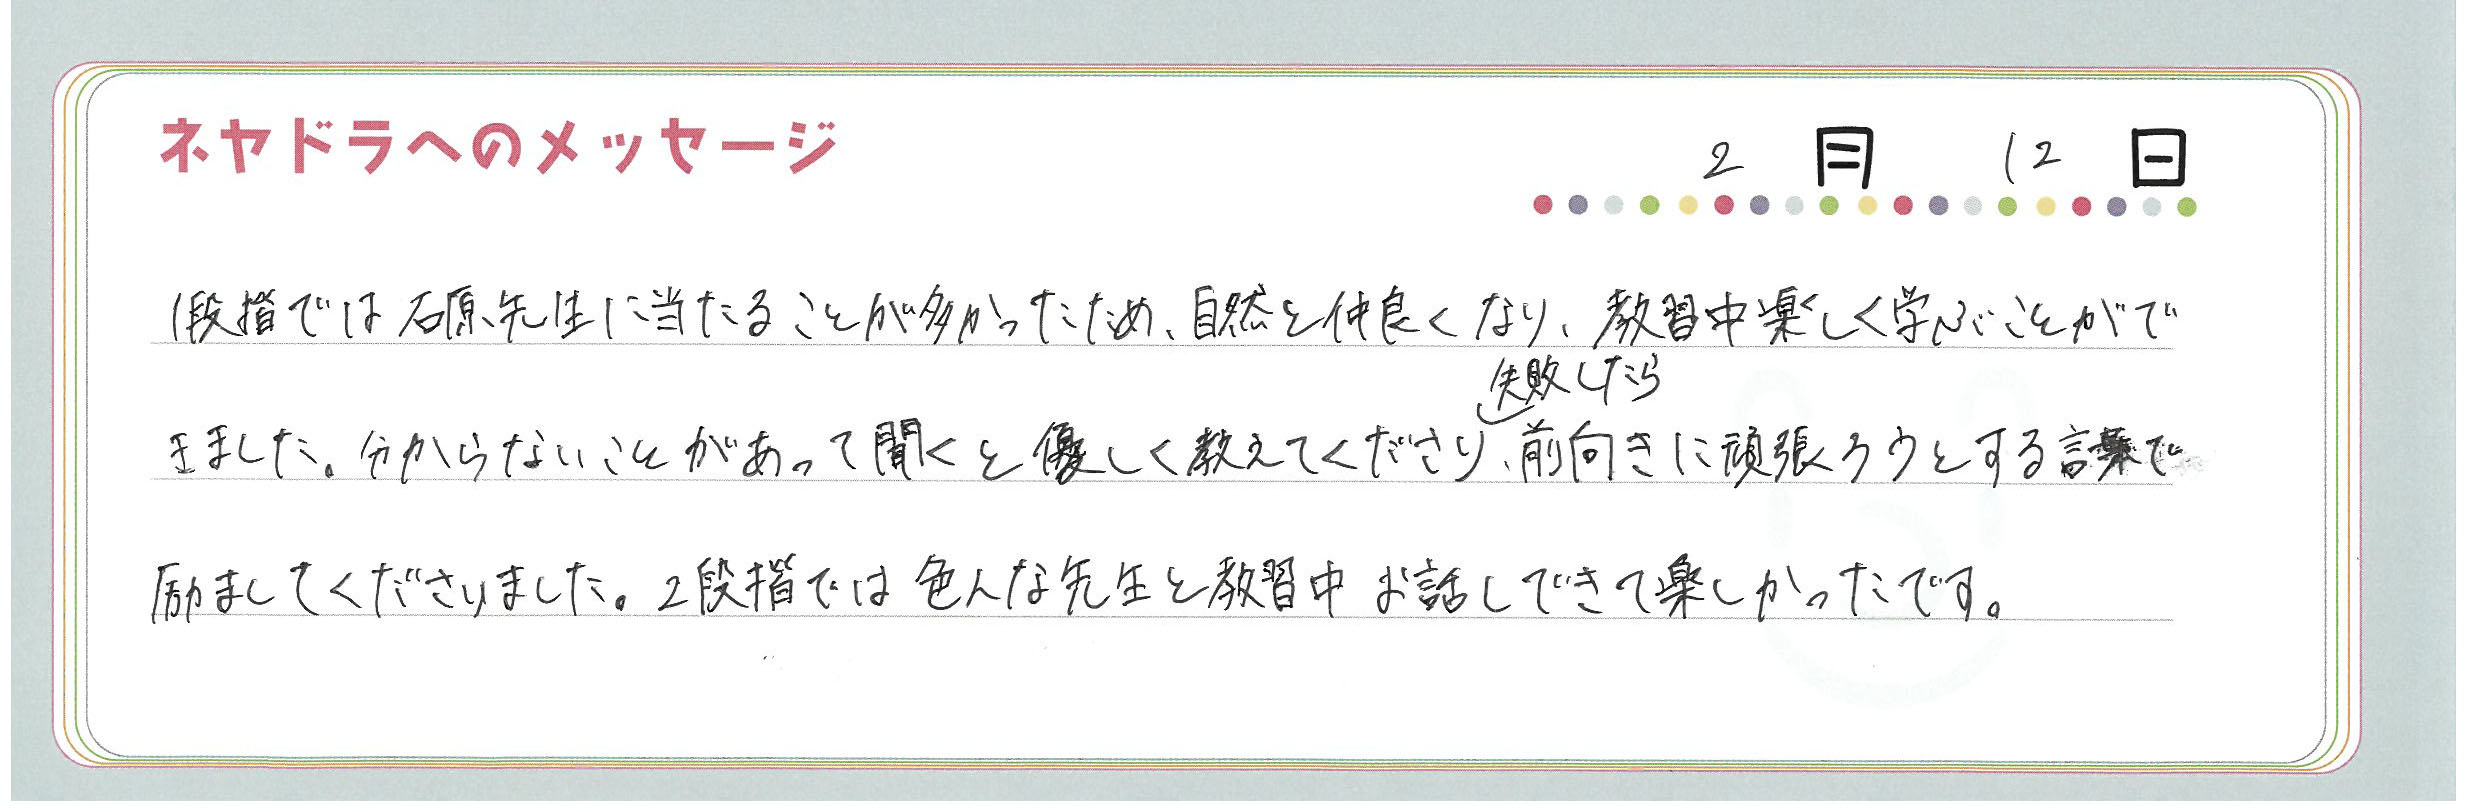 ネヤドラへのメッセージ
2月 12日
1段階では石原先生に当たることが多かったため、自然と仲良くなり、教習中楽しく学ぶことがで
失敗したら
きました。分からないことがあって聞くと優しく教えてくださり、前向きに頑張ろうとする言葉で
励ましてくださいました。2段階では色んな先生と教習中お話しできて楽しかったです。